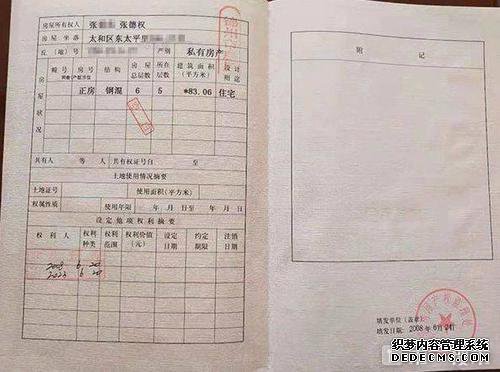 房屋所有权人 张 张德权
房屋坐落 太和区东太平里
丘（地）号 产别 私有房产
房屋状况
幢号 房号 结构 房屋总层数 所在层数 建筑面积（平方米） 设计用途
正房 钢混 6 5 *83.06 住宅
共有人 等 人 共有权证号自 至
土地使用情况摘要
土地证号 使用面积（平方米）
权属性质 使用年限 年 月 日至 年 月 日
设定他项权利摘要
权利人 权利种类 权利范围 权利价值（元） 设定日期 约定期限 注销日期
附记
填发单位（盖章）
填发日期：2008年6月24日
织梦内容管理系统
DEDECMS.COM